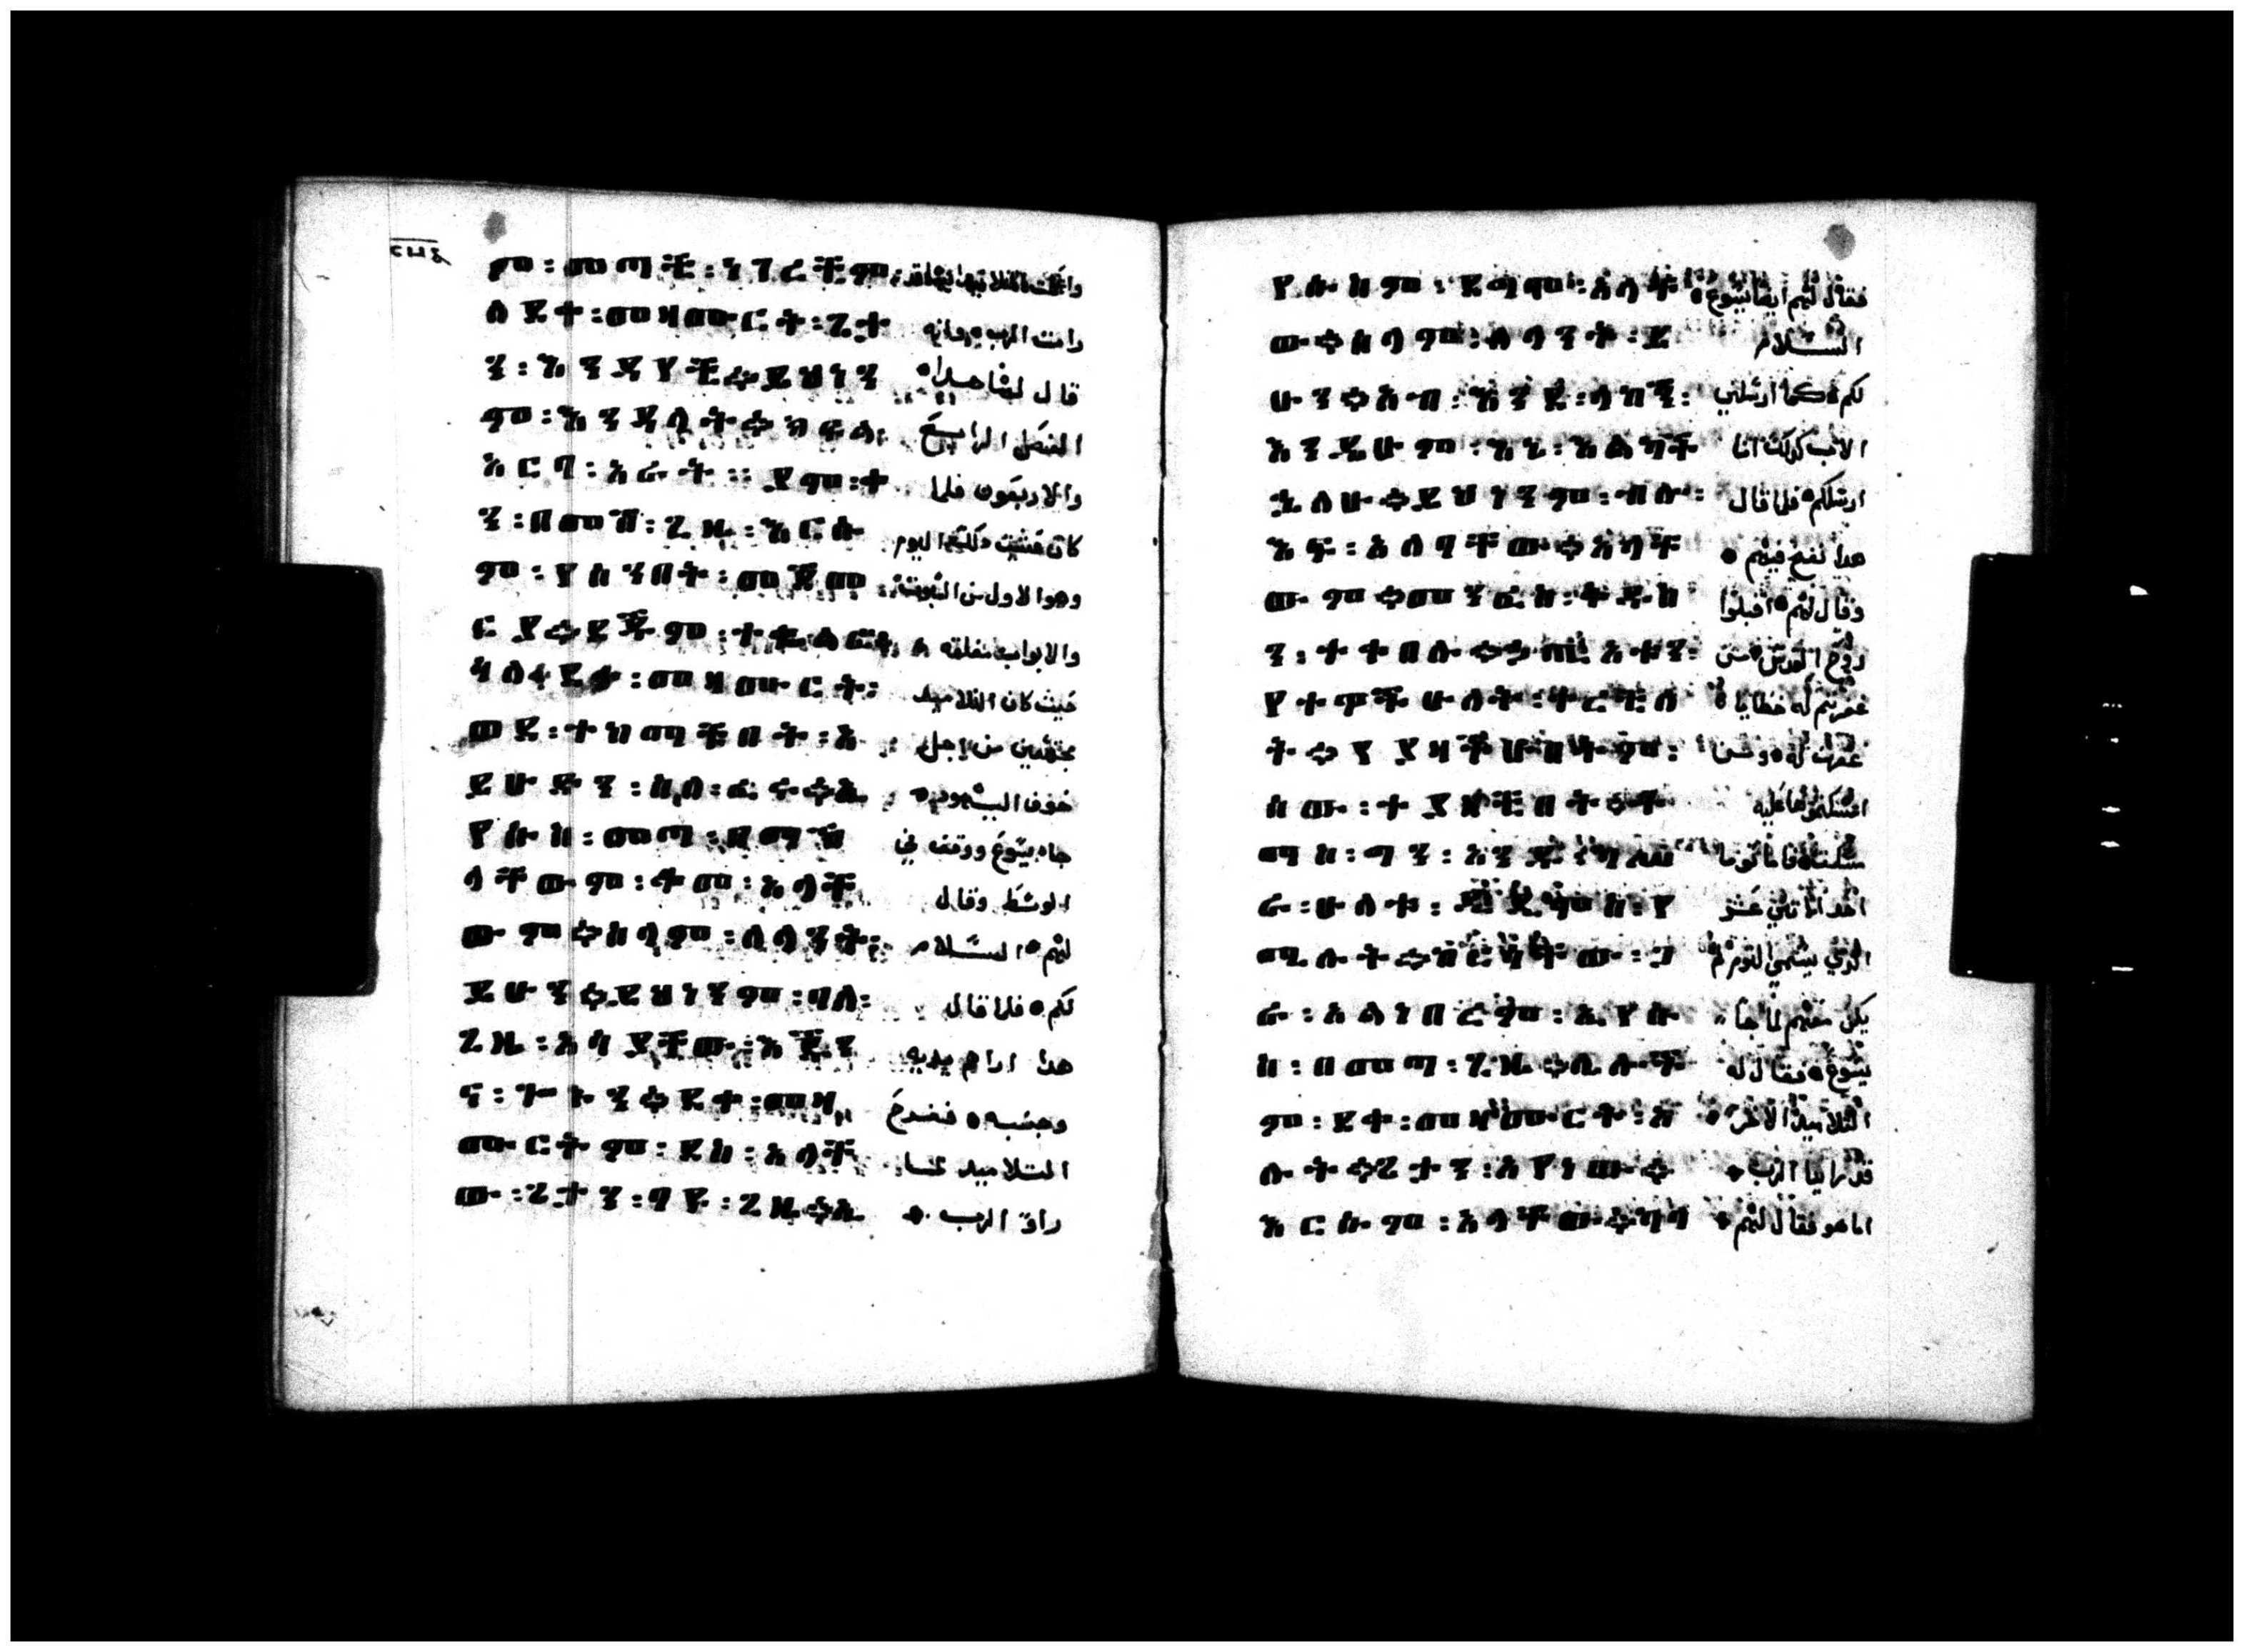 ም : መጣች : ነገረችም:
ለደቀ : መዛሙርት : ጌታ رات الرب وانه
ን : እንዳየች። ይህንን قال لها هدا
ም : እንዳላት። ክፍል: الفصل الرابع
አርባ : አራት ። ያም : ቀ والاربعون فلما
ን : በመሸ : ጊዜ : እርሱ كان عشية دلك اليوم
ም : የሰንበት : መጀመ وهوا الاول من السبوت
ርያ። ደጅም : والابواب مغلقه
ደቀ : መዛሙርት: حيث كان التلاميد
ወደ : ተከማቹበት : አ مجتمعين من اجل
ይሁድን : ስለ : ፈሩ። ኢ خوف اليهود
የሱስ : መጣ : በማኸ جاء يسوع ووقف في
ላቸውም : ቆመ : አላቸ الوسط وقال
ውም። ሰላም : ለናንተ: لهم السلام
ይሁን። ይህንንም : ብሎ: لكم فلما قال
ጊዜ : አሳያቸው : እጁን هدا اراهم يديه
ና : ጎኑን። ደቀ : መዛ وجنبه ففرح
ሙርትም : ደስ : አላቸ التلاميد لما
ው : ጌታን : ባዩ : ጊዜ። ኢ راوا الرب
የሱስም : ደግሞ : አላቸ فقال لهم ايضا يسوع
ው። ሰላም : ለናንተ : ይ السلام
ሁን። አብ : እንደ : ላከኝ: لكم كما ارسلني
እንዲሁም : እኔ : እልካች الاب كدلك انا
ኋለሁ። ይህንንም : ብሎ: ارسلكم فلما قال
እፍ : አለባቸው። አላቸ هدا نفخ فيهم
ውም። መንፈስ : ቅዱስ وقال لهم اقبلوا
ን : ተቀበሉ። روح القدس من
የተዋችሁለት : ኀጢአ غفرتم له خطايا
ት። የያዛችሁበትም: غفرت له ومن
ሰው : ተያዘችበት። امسكتموها عليه
ቶማስ : ግን : فاما توما
ሁለት : احد الاثني عشر
الدي يسمى التوم لم
ራ : አልነበረም : ኢየሱ يكن معهم لما جا
ስ : በመጣ : ጊዜ። ሌሎች يسوع فقال له
ም : ደቀ : መዛሙርት : አ التلاميد الاخر
ሉት። ጌታን : አየነው። قد راينا الرب
እርሱም : አላቸው። اما هو فقال لهم